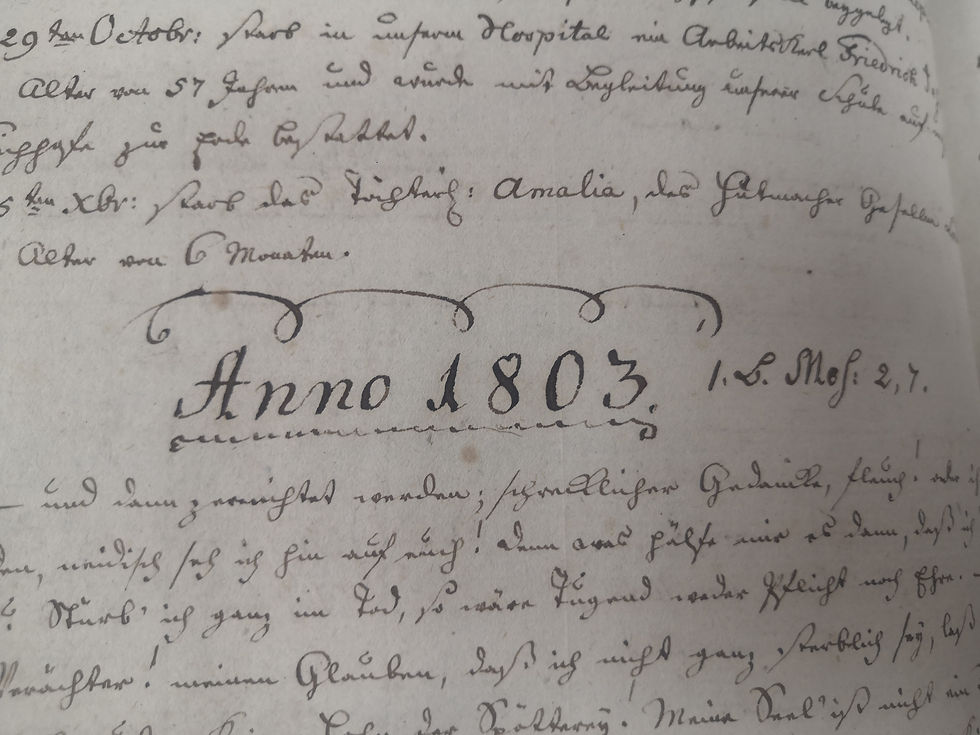 29ten Octobr: starb in unserm Hospital ein Arbeits Kerl Friedrich
Alter von 57 Jahren und wurde mit Begleitung unserer Schule auf
zur Erde bestattet.
5ten Xbr: starb das Töchterch: Amalia, des Hutmacher Gesellen
Alter von 6 Monaten.
Anno 1803. 1. B. Mos: 2, 7.
– und dann zernichtet werden; schrecklicher Gedancke, fleuch! oder
neidisch seh ich hin auf euch! Denn was hälfe mir es dann, daß ich
Stürb' ich ganz im Tod, so wäre Tugend weder Pflicht noch Ehre. –
Verächter! meinen Glauben, daß ich nicht ganz sterblich sey, laß
Hohn der Spötterey! Meine Seel' ist nicht ein